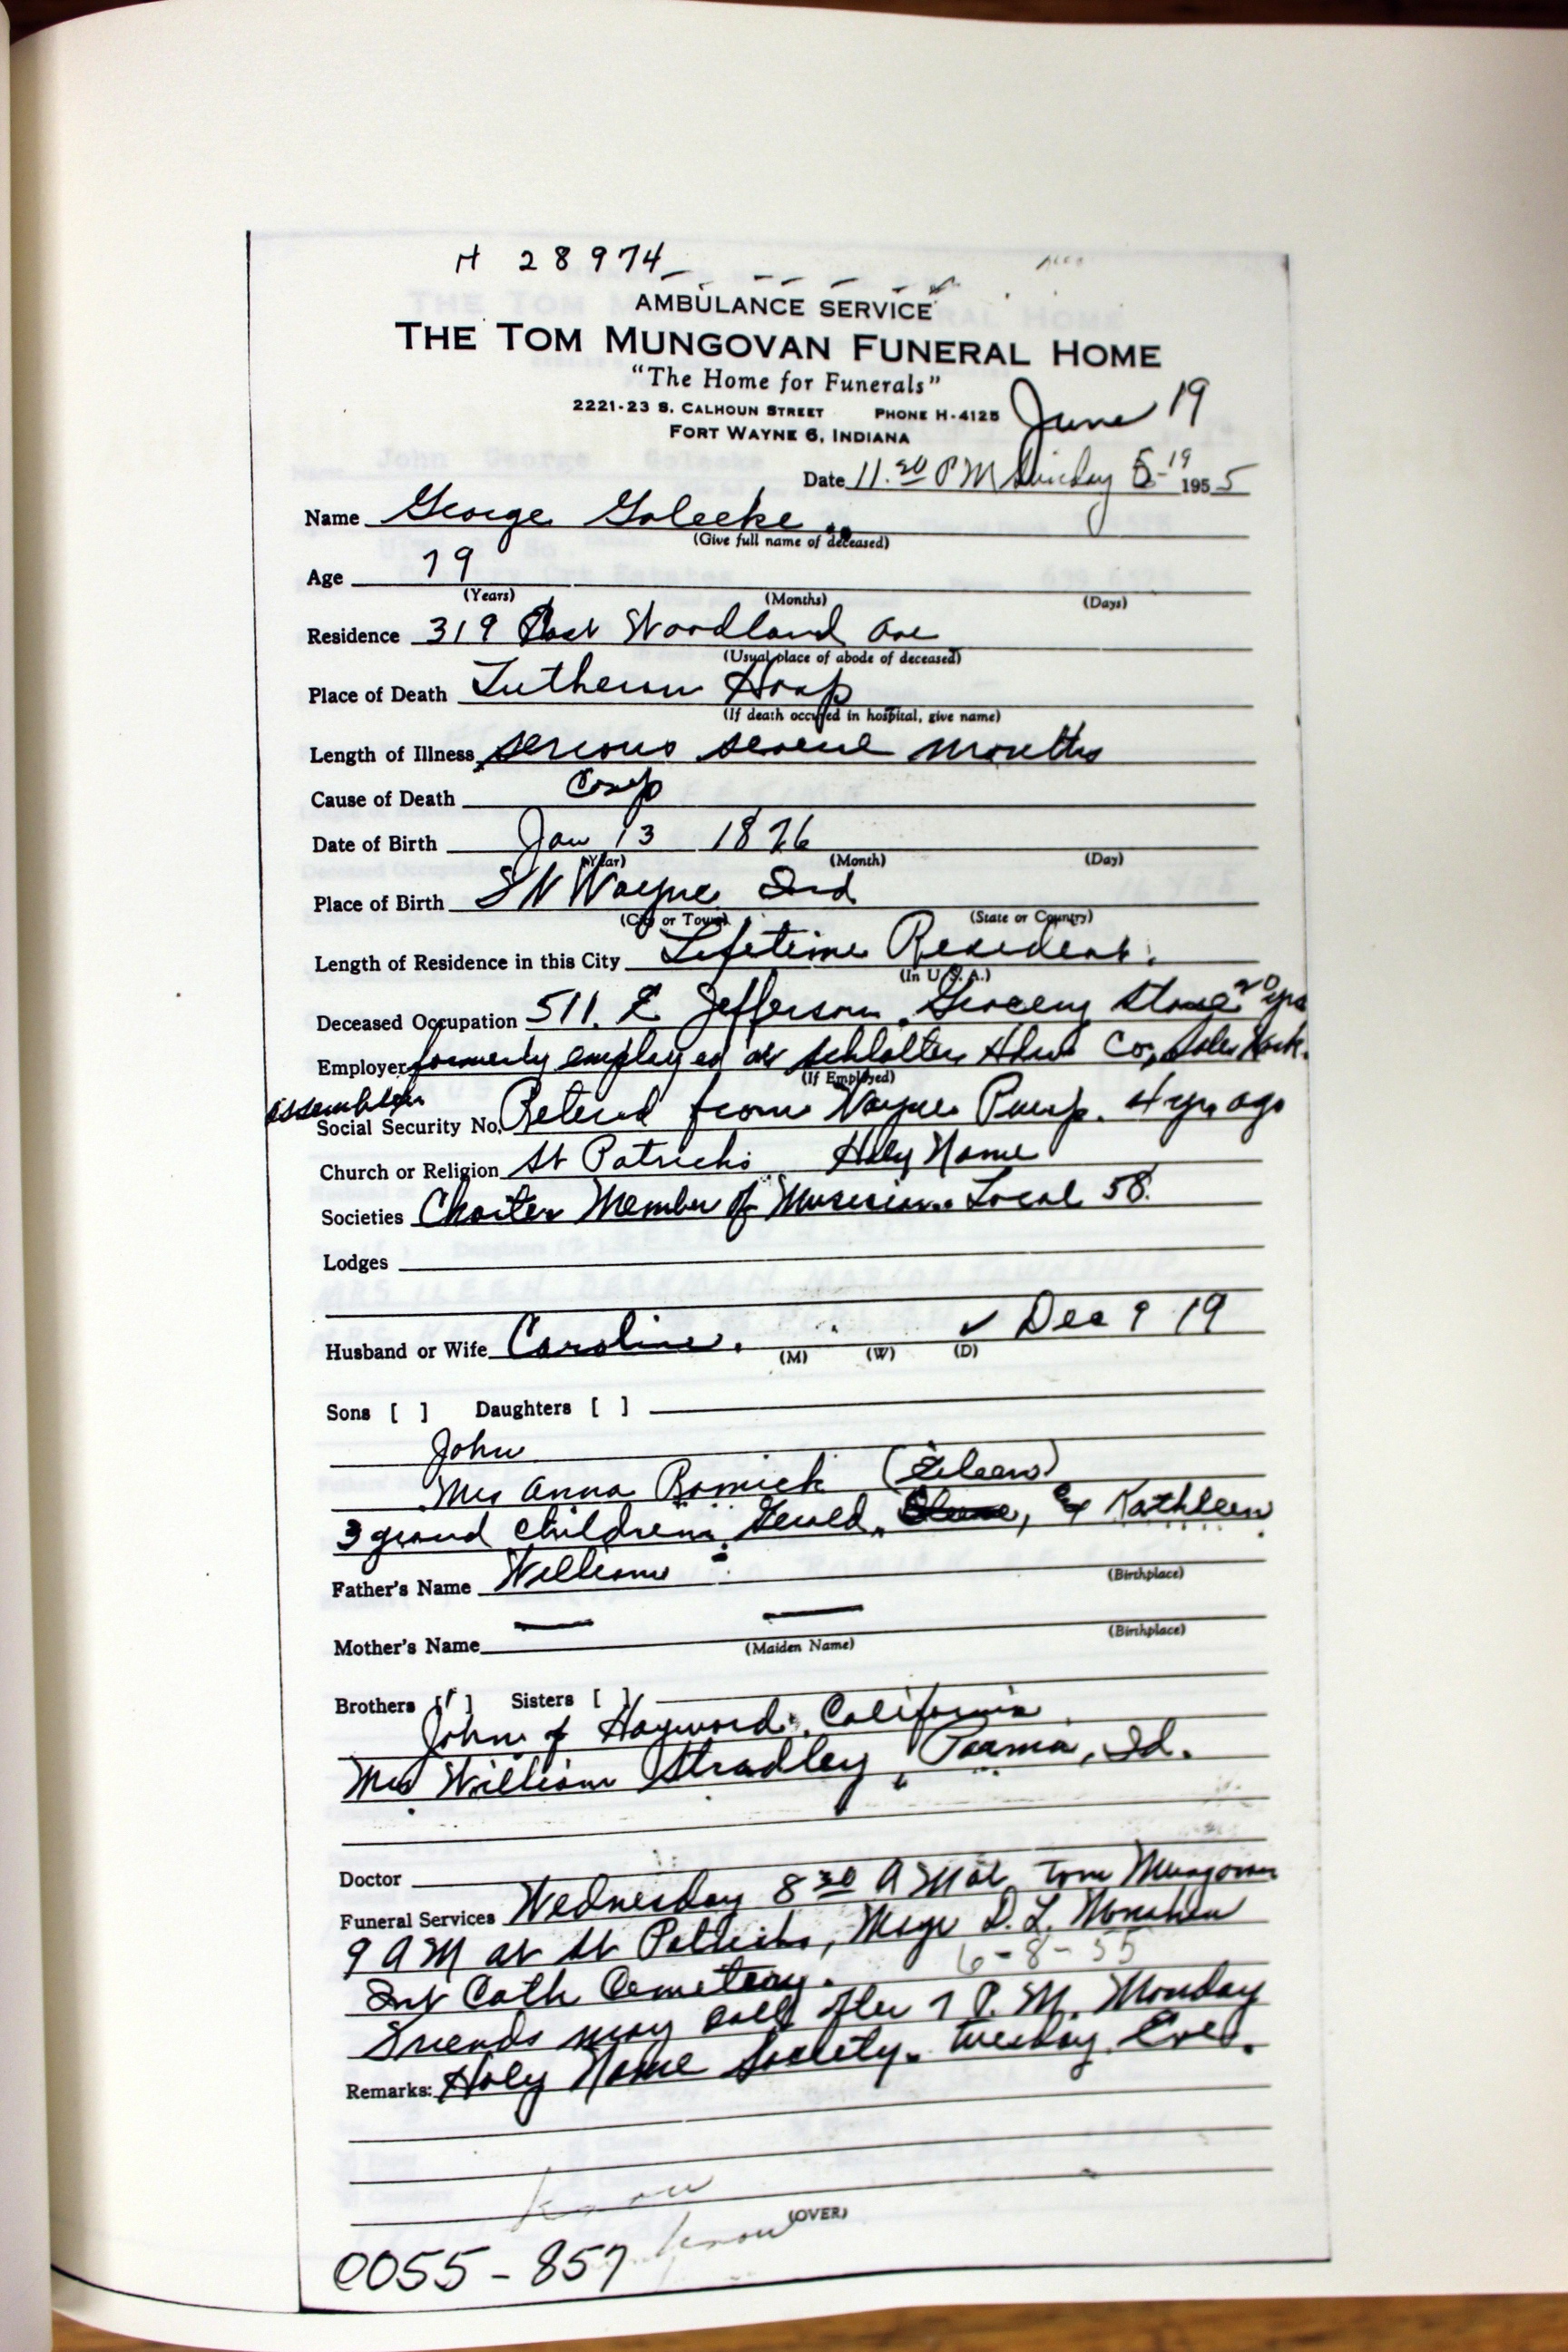 H 28974
AMBULANCE SERVICE
THE TOM MUNGOVAN FUNERAL HOME
"The Home for Funerals"
2221-23 S. CALHOUN STREET PHONE H-4125
FORT WAYNE 6, INDIANA
June 19
Date 11.30 PM Sunday 5-19 1955
Name George Golecke
(Give full name of deceased)
Age 79
(Years) (Months) (Days)
Residence 319 East Woodland Ave
(Usual place of abode of deceased)
Place of Death Lutheran Hosp
(If death occured in hospital, give name)
Length of Illness serious several months
Cause of Death Comp
Date of Birth Jan 13 1876
(Year) (Month) (Day)
Place of Birth Ft Wayne Ind
(City or Town) (State or Country)
Length of Residence in this City Lifetime Resident.
(In U.S.A.)
Deceased Occupation 511. E Jefferson, Grocery Store 20 yrs
Employer formerly employed at Schlatter Hdw Co, Sales
(If Employed)
assembler
Social Security No. Retired from Wayne Pump. 4 yrs ago
Church or Religion St Patricks Holy Name
Societies Charter Member of Musicians Local 58.
Lodges
Husband or Wife Caroline. ✓ Dec 9 19
(M) (W) (D)
Sons [ ] Daughters [ ]
John
Mrs Anna Romick (Eileen)
3 grand children, Gerald, & Kathleen
Father's Name William
(Birthplace)
Mother's Name
(Maiden Name) (Birthplace)
Brothers [1] Sisters [ ]
John of Hayward, California
Mrs William Stradley, Parma, Id.
Doctor
Funeral Services Wednesday 8 30 AM at Tom Mungovan
9 AM at St Patricks, Msgr D. L. Monahan
6-8-55
Int Cath Cemetery.
Friends may call after 7 P.M. Monday
Remarks: Holy Name Society. Tuesday Eve.
know
(OVER)
know
0055-857